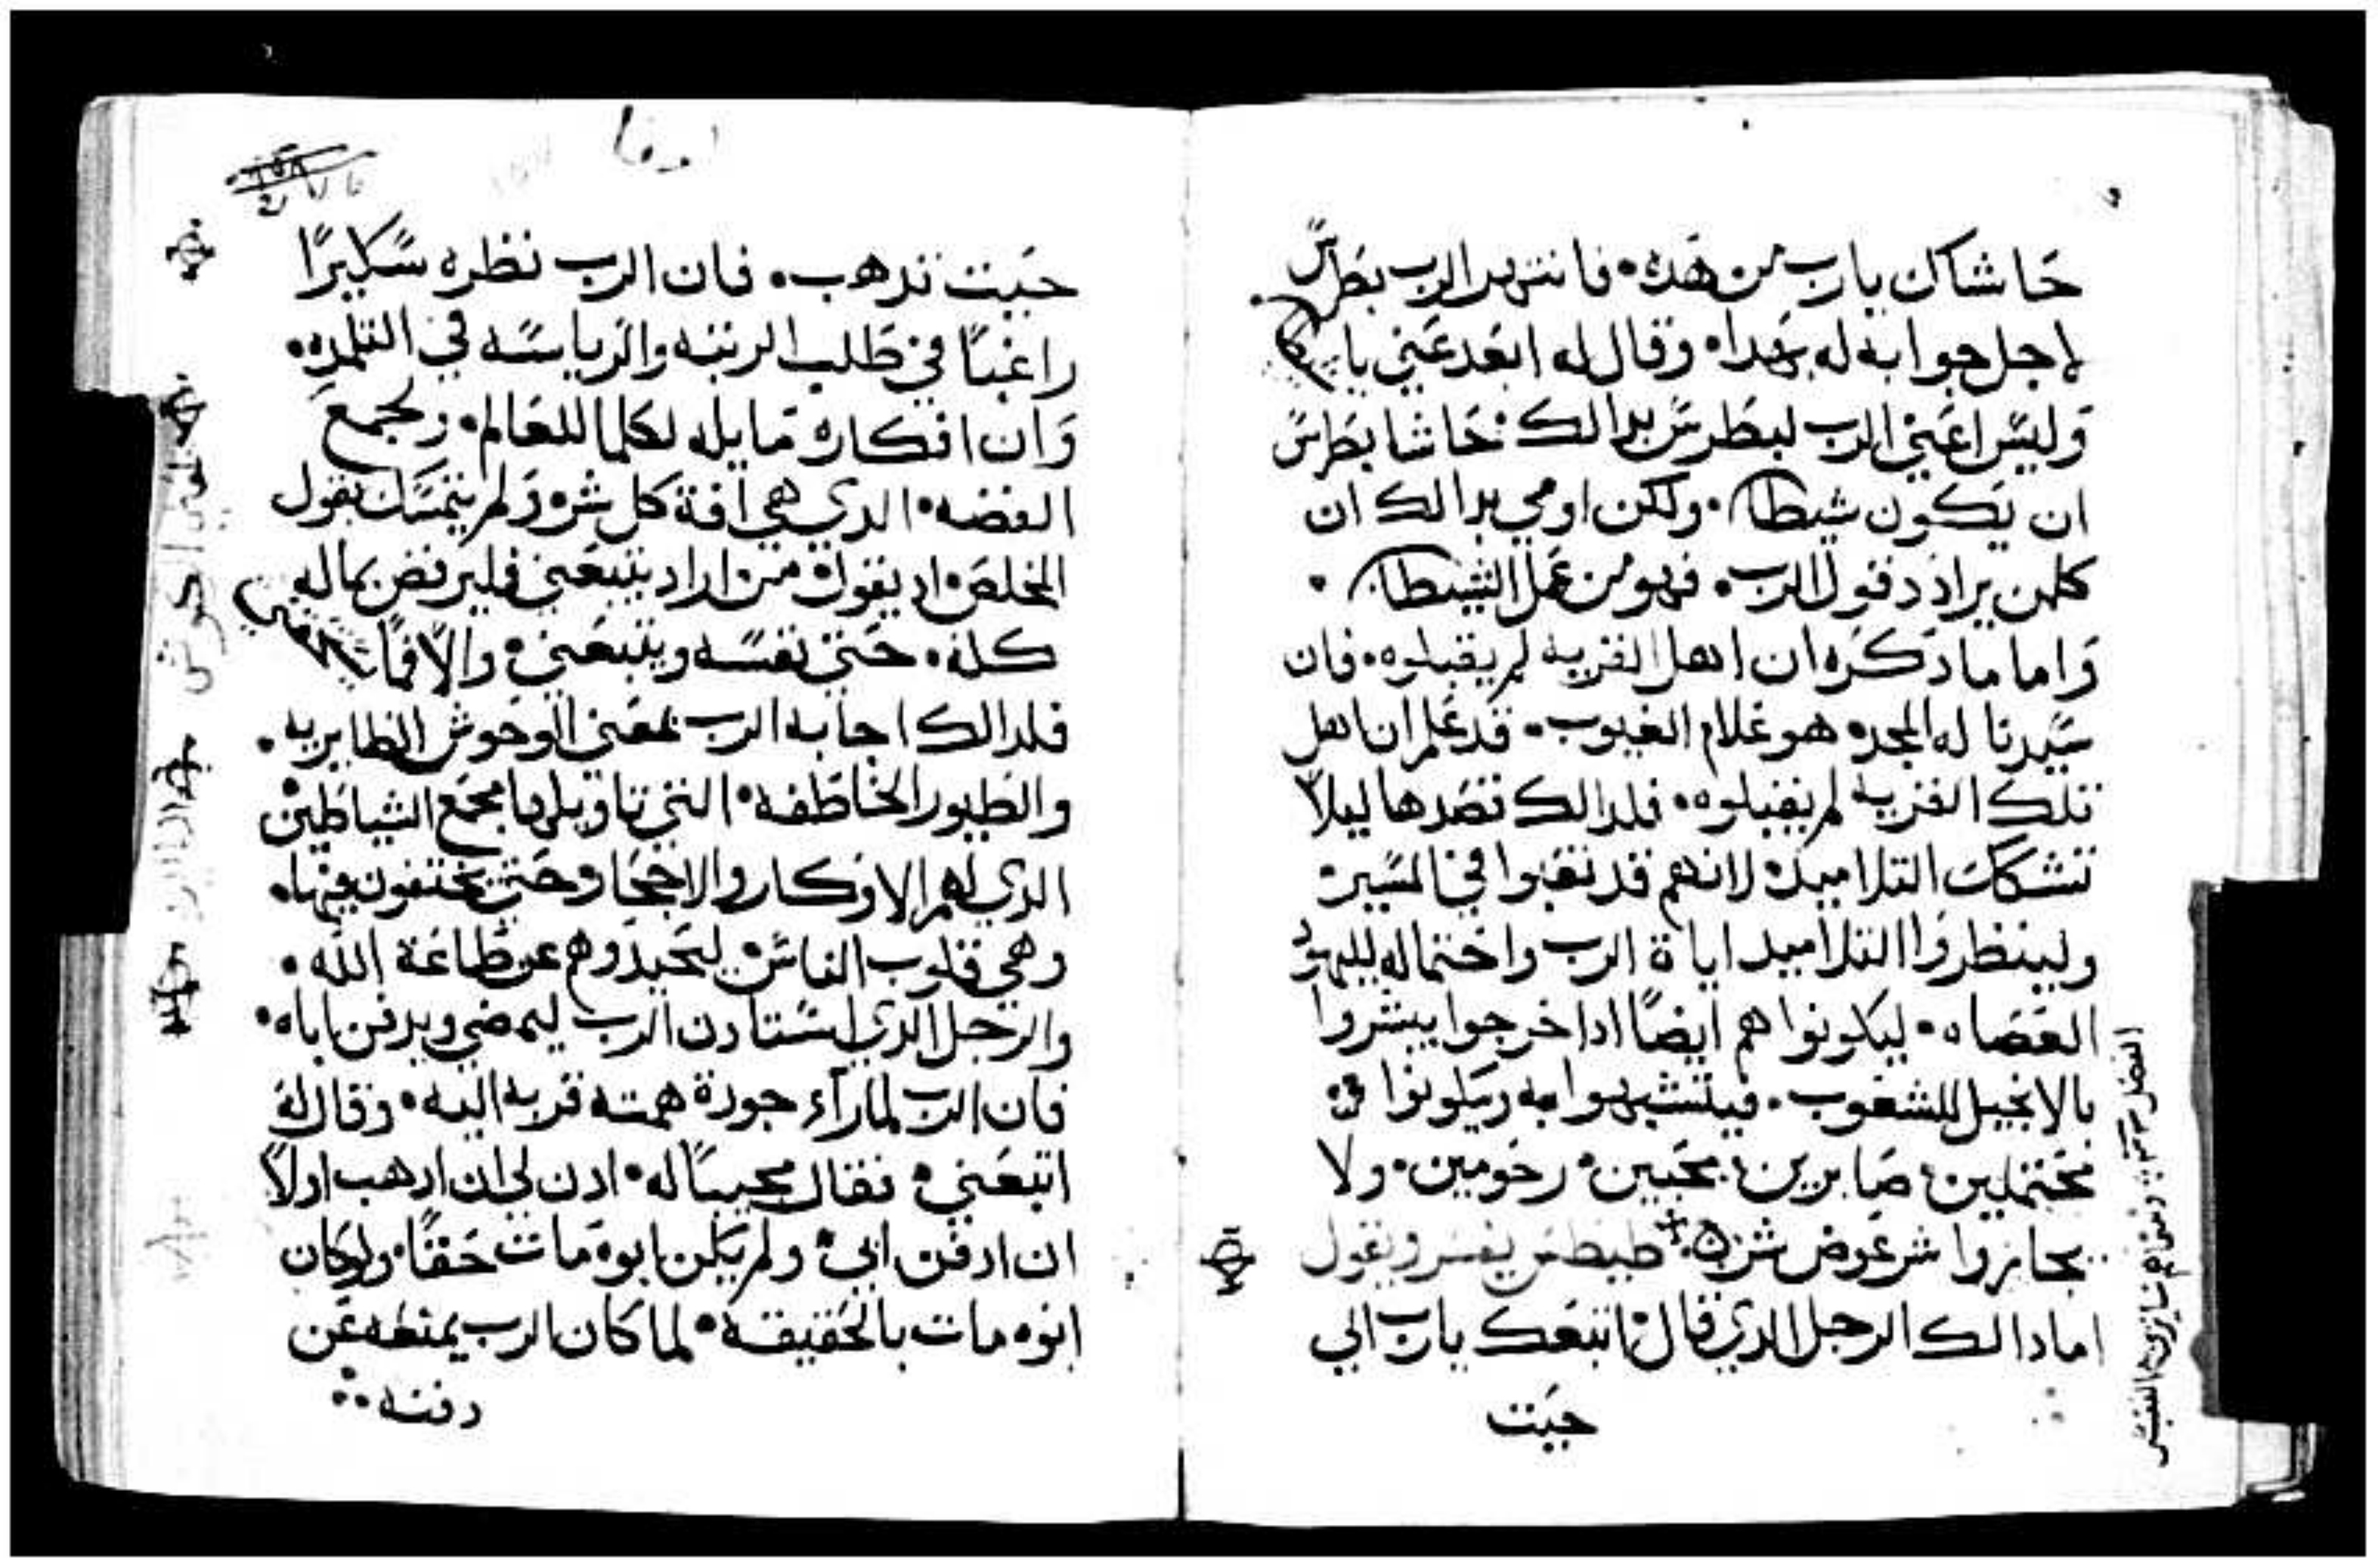 حاشاك يارب من هده. فانتهر الرب بطرس
لاجل جوابه له بهدا. وقال له ابعد عني يا
وليس اعني الرب لبطرس بدالك حاشا بطرس
ان يكون شيطان. ولكن اومي بدالك ان
كلمن يرادد قول الرب. فهو من عمل الشيطان.
واما مادكره ان اهل القريه لم يقبلوه. فان
سيدنا له المجد. هو علام الغيوب. قد علم ان اهل
تلك القريه لم يقبلوه. فلدالك قصدها ليلا
تتشكك التلاميد. لانهم قد تقبوا في المسير.
ولينظروا التلاميد اياة الرب واحتماله لليهود
العصاه. ليكونوا هم ايضًا ادا خرجوا يبشروا
بالانجيل للشعوب. فيتشبهوا به ويكونوا
محتملين. صابرين. محبين. رحومين. ولا
يجازوا شر عوض شر. طيطس يفسر ويقول
اما دالك الرجل الدي قال اتبعك يارب الي
حيت
لوقا
حيت تدهب. فان الرب نظره سكيرًا
راغبًا في طلب الرتبه والرياسه في التلمده.
وان افكاره مايله لكلما للعالم. ولجمع
الفضه. الدي هي افة كل شر. ولم يتمسك بقول
المخلص. اد يقول من اراد يتبعني فليرفض بماله
كله. حتي نفسه ويتبعني. والا فما يستحقني
فلدالك اجابه الرب بمعني الوحوش الظايريه.
والطيور الخاطفه. التي تاويلها مجمع الشياطين
الدي لهم الاوكار والاجحار وحتي يختفون فيها.
وهي قلوب الناس. ليحيدوهم عن طاعة الله.
والرجل الدي استادن الرب ليمضي ويدفن اباه.
فان الرب لما رآء جودة همته قربه اليه. وقال له
اتبعني. فقال مجيبًا له. ادن لي ان ادهب اولا
ان ادفن ابي. ولم يكن ابوه مات حقًا. ولو كان
ابوه مات بالحقيقة. لما كان الرب يمنعه عن
دفنه